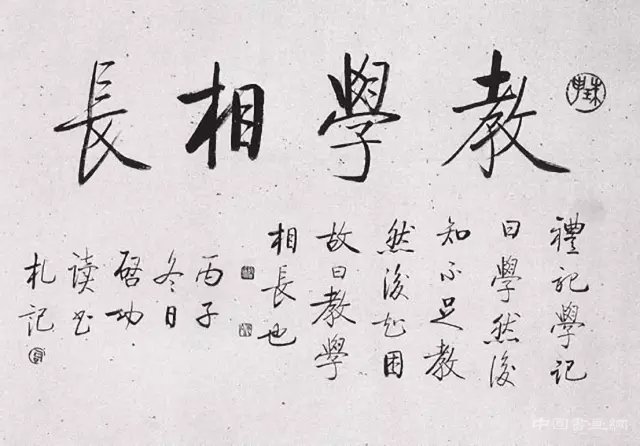 教學相長
禮記學記
曰學然後
知不足教
然後知困
故曰教學
相長也
丙子
冬日
启功
读书
札記
中国書画網